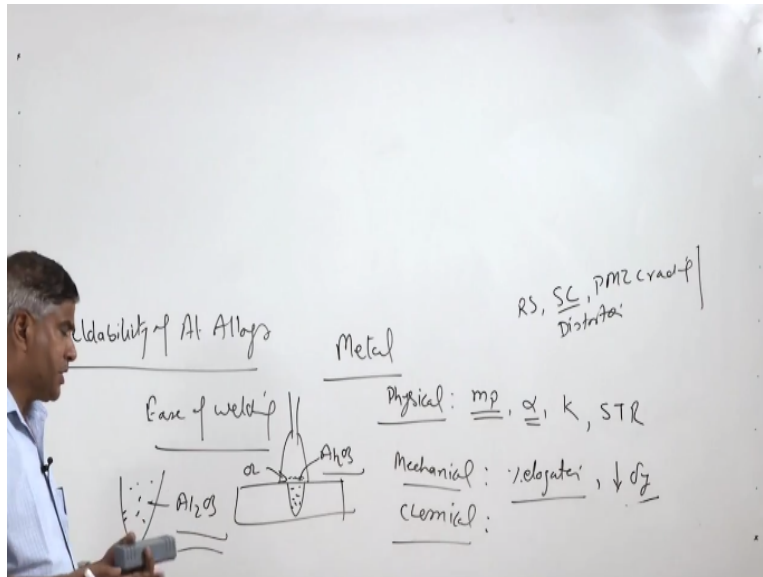 RS, SC, PMZ Cracking
Distortion
ldability of Al Alloys
Metal
Ease of welding
Physical : mp, α, K, STR
Al2O3
Mechanical : % elogation, ↓ σy
Al2O3
Chemical :